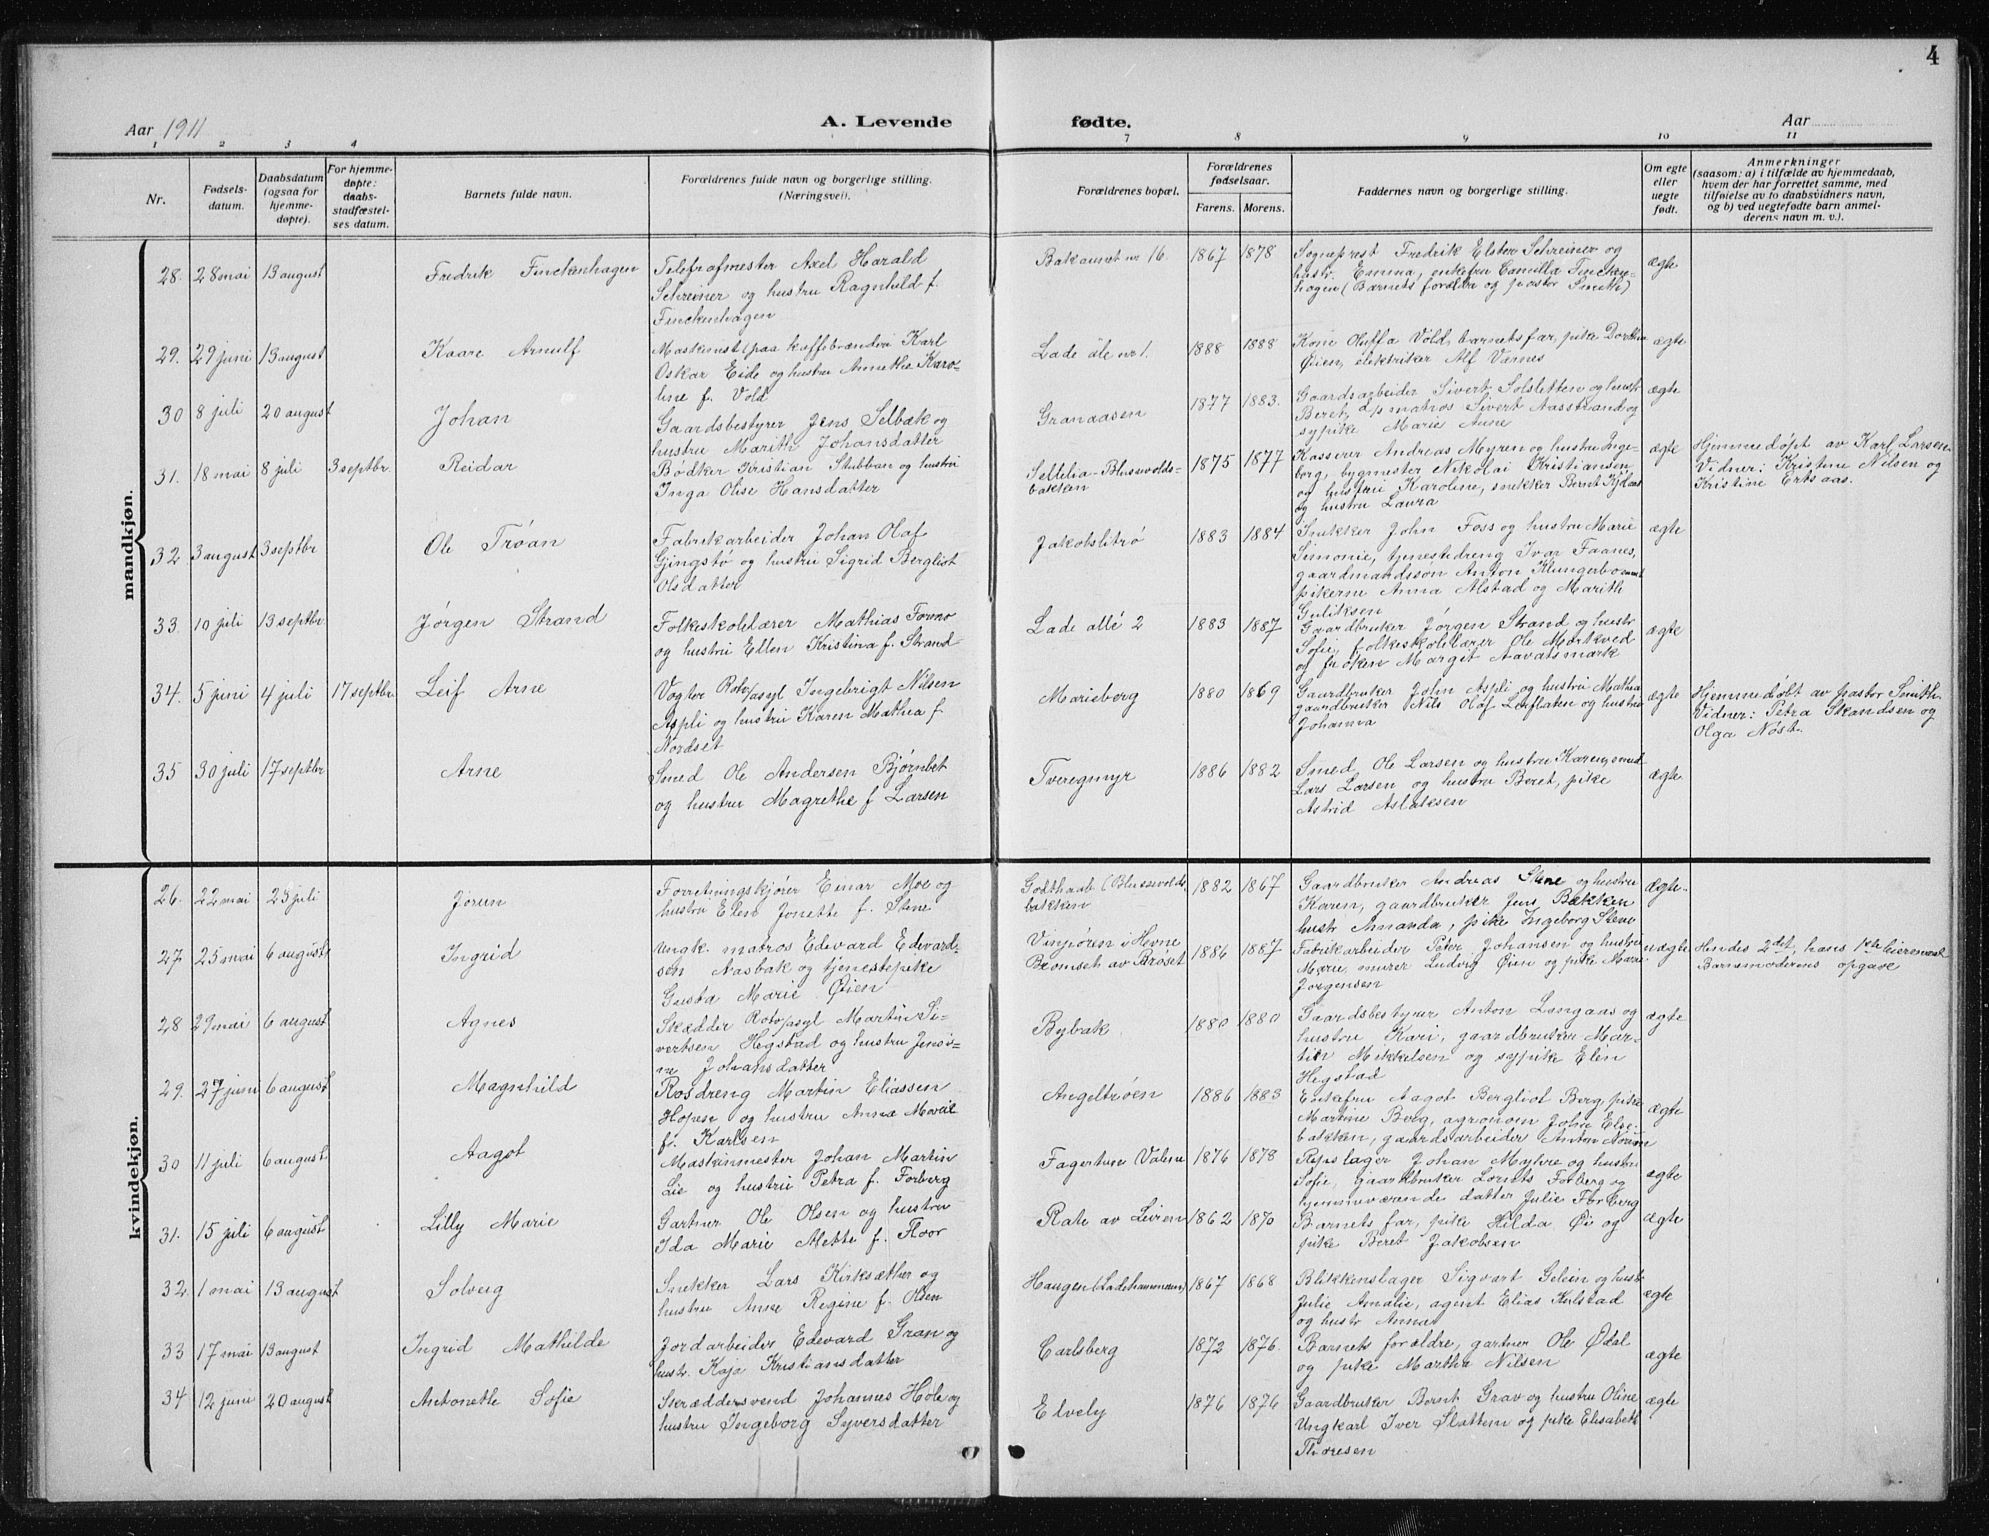 4
Aar 1911
A. Levende
fødte.
Aar
1 2 3 4 7 8 9 10 11
Nr.
Fødsels-
datum.
Daabsdatum
(ogsaa for
hjemme-
døpte).
For hjemme-
døpte:
daabs-
stadfæstel-
ses datum.
Barnets fulde navn.
Forældrenes fulde navn og borgerlige stilling.
(Næringsvei).
Forældrenes bopæl.
Forældrenes
fødselsaar.
Farens. Morens.
Faddernes navn og borgerlige stilling.
Om egte
eller
uegte
født.
Anmerkninger
(saasom: a) i tilfælde av hjemmedaab,
hvem der har forrettet samme, med
tilføielse av to daabsvidners navn,
og b) ved uegtefødte barn anmel-
derens navn m. v.).
mandkjøn.
28. 28 mai 13 august Fredrik Finckenhagen
Telefrafmester Axel Harald
Schreiner og hustru Ragnhild f.
Finckenhagen
Bakaunet nr 16 1867 1878
Sogneprest Fredrik Elster Schreiner og
hustr. Emma, enkefru Camilla Fincken-
hagen (Barnets forældre og pastor Smith)
ægte
29. 29 juni 13 august Kaare Arnulf
Maskinist paa kaffebrænderi Karl
Oskar Eide og hustru Annethe Karo-
line f. Vold
Lade ale nr 1. 1888 1888
Kone Oluffa Vold, barnets far, pike Dorthea
Øien, elektriker Alf Værnes
ægte
30 8 juli 20 august Johan
Gaardsbestyrer Jens Selbæk og
hustru Marith Johansdatter
Granaasen 1877 1883.
Gaardsarbeider Sivert Solsletten og hustr
Beret, matros Sivert Nasstrand og
sypike Marie Aune
ægte
31. 18 mai 8 juli 3 septbr. Reidar
Bødker Kristian Stubban og hustru
Inga Olise Hansdatter
Sellilia-Blussevolds-
bakken 1875 1877
Kasserer Andreas Myren og hustru Inge-
borg, bygmester Nikolai Kristiansen
og hustru Karoline, snekker Bernt
og hustru Laura
ægte
Hjemmedøpt av Karl Larsen
Vidner: Kristine Nilsen og
Kristine Ertsaas.
32 3 august 3 septbr Ole Trøan
Fabrikarbeider Johan Olaf
Gjingstø og hustru Sigrid Bergliot
Olsdatter
Jakobslitrø 1883 1884
Snekker John Foss og hustru Marie
Simonie, tjenestedreng Ivar Faanes,
gaardmandssøn Anton Klungerbo samt
pikerne Anna Alstad og Marith
Guliksen
ægte
33. 10 juli 13 septbr. Jørgen Strand
Folkeskolelærer Mathias Forno
og hustru Ellen Kristina f. Strand
Lade allé 2 1883 1887
Gaardbruker Jørgen Strand og hustr
Sofie, folkeskolelærer Ole Mørkved
og frøken Marget Aavatsmark
ægte
34. 5 juni 4 juli 17 septbr. Leif Arne
Vogter Rotv/asyl Ingebrigt Nilsen
Aspli og hustru Karen Mathea f.
Nordset
Marieberg 1880 1869
Gaardbruker John Aspli og hustru Mathea
gaardbruker Nils Olaf Leiflaten og hustru
Johanna
ægte
Hjemmedøbt av pastor Smith.
Vidner: Petra Skandsen og
Olga Nøst.
35 30 juli 17 septbr Arne
Smed Ole Andersen Bjørnbet
og hustru Magrethe f Larsen
Tveregmyr 1886 1882
Smed Ole Larsen og hustru Karen, smed
Lars Larsen og hustru Beret, pike
Astrid Aslaksen
ægte
kvindekjøn.
26. 22 mai 23 juli Jorun
Forretningskjører Einar Moe og
hustru Elen Jonette f. Stene
Godthaab (Blussevolds
bakken 1882 1867
Gaardbruker Andreas Stene og hustru
Karen, gaardbruker Jens Bækken
hustr Amanda, pike Ingeborg Stene
Ægte.
27 25 mai 6 august Ingrid
Ungk. matros Edevard Edevard-
sen Nasbak og tjenestepike
Gusta Marie Øien
Vinjøren i Hevne
Bromseh av Brøset 1886 1887
Fabrikarbeider Peter Johansen og hustru
Marie, murer Ludvig Øien og pike Marie
Jorgensen
uægte
Hendes 2det, hans 1ste leiermaal
Barnsmoderens opgave
28 29 mai 6 august Agnes
Skrædder Rotv/asyl Martin Si-
vertsen Hegstad og hustru Jensi-
ne Johansdatter
Bybæk 1880 1880
Gaardsbestyrer Anton Langaas og
hustru Kari, gaardbruker Mar-
tin Mikkelsen og sypike Elen
Hegstad
ægte
29. 27 juni 6 august Magnhild
Rosdreng Martin Eliassen
Hopen og hustru Anna Marie
f. Karlsen
Angeltrøen 1886 1883
Enkefru Aagot Bergliot Berg, pike
Martine Berg, agronom John Else-
bakken, gaardsarbeider Anton Norum
ægte
30 11 juli 6 august Aagot
Maskinmester Johan Martin
Lie og hustru Petra f. Forberg
Fagertun Valene 1876 1878
Repslager Johan Myhre og hustru
Sofie, gaardbruker Lornts Forberg og
hjemmeværende datter Julie Forberg
ægte
31. 15 juli 6 august Lilly Marie
Gartner Ole Olsen og hustru
Ida Marie Alette f. Floor
Rate av Leiren 1862 1870
Barnets far, pike Hilda Øi og
pike Beret Jakobsen
ægte
32 1 mai 13 august Solveig
Snekker Lars Kirksæther og
hustru Anne Regine f. Olsen
Haugen (Ladehammern) 1867 1868
Blikkenslager Sigvart Gelein og hustr
Julie Amalie, agent Elias Kulstad
og hustr Anna
ægte
33 17 mai 13 august Ingrid Mathilde
Jordarbeider Edevard Gran og
hustr. Kaja Kristiansdatter
Carlsberg 1872 1876.
Barnets forældre, gartner Ole Ødal
og pike Martha Nilsen
ægte
34 12 juni 20 august Antonette Sofie
Skræddersvend Johannes Hole og
hustru Ingeborg Syversdatter
Elvely 1876 1876
Gaardbruker Bernt Grav og hustru Oline
Ungkarl Iver Slattem og pike Elisabeth
Thoresen
ægte